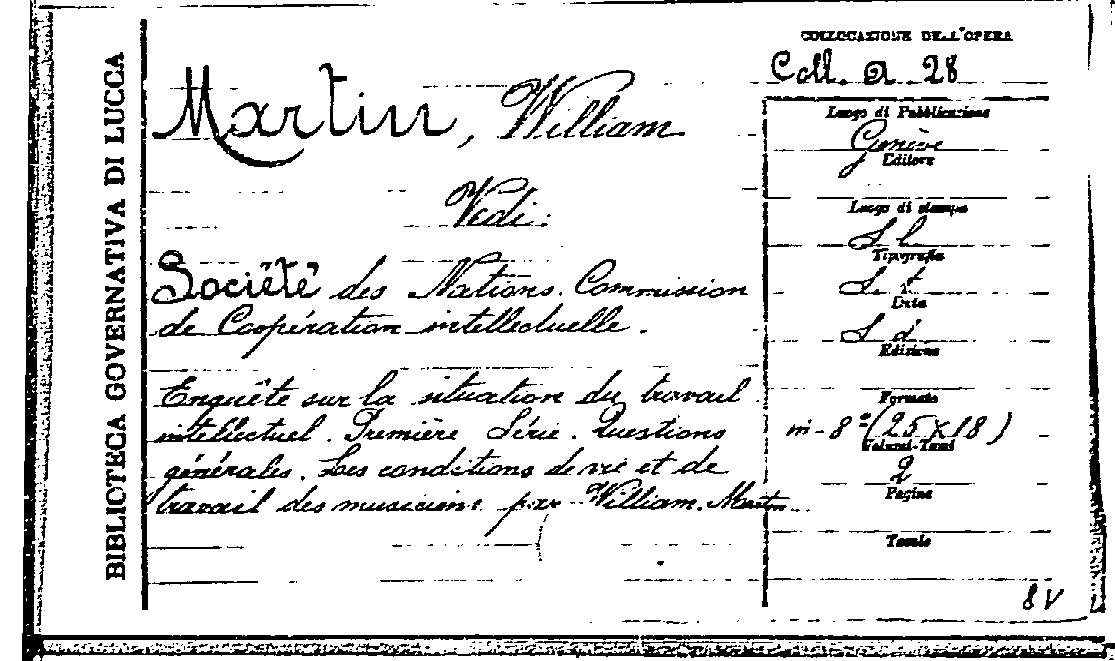 BIBLIOTECA GOVERNATIVA DI LUCCA
Martin, William
Vedi:
Société des Nations. Commission
de Coopération intellectuelle.
Enquête sur la situation du travail
intellectuel. Première Série. Questions
générales. Les conditions de vie et de
travail des musiciens par William. Martin
COLLOCAZIONE DELL'OPERA
Coll. a. 28
Luogo di Pubblicazione
Genève
Editore
Luogo di stampa
S l
Tipografia
S. t
Data
S d
Edizione
Formato
in-8° (25 x 18)
Volumi-Tomi
2
Pagine
Tavole
8 V